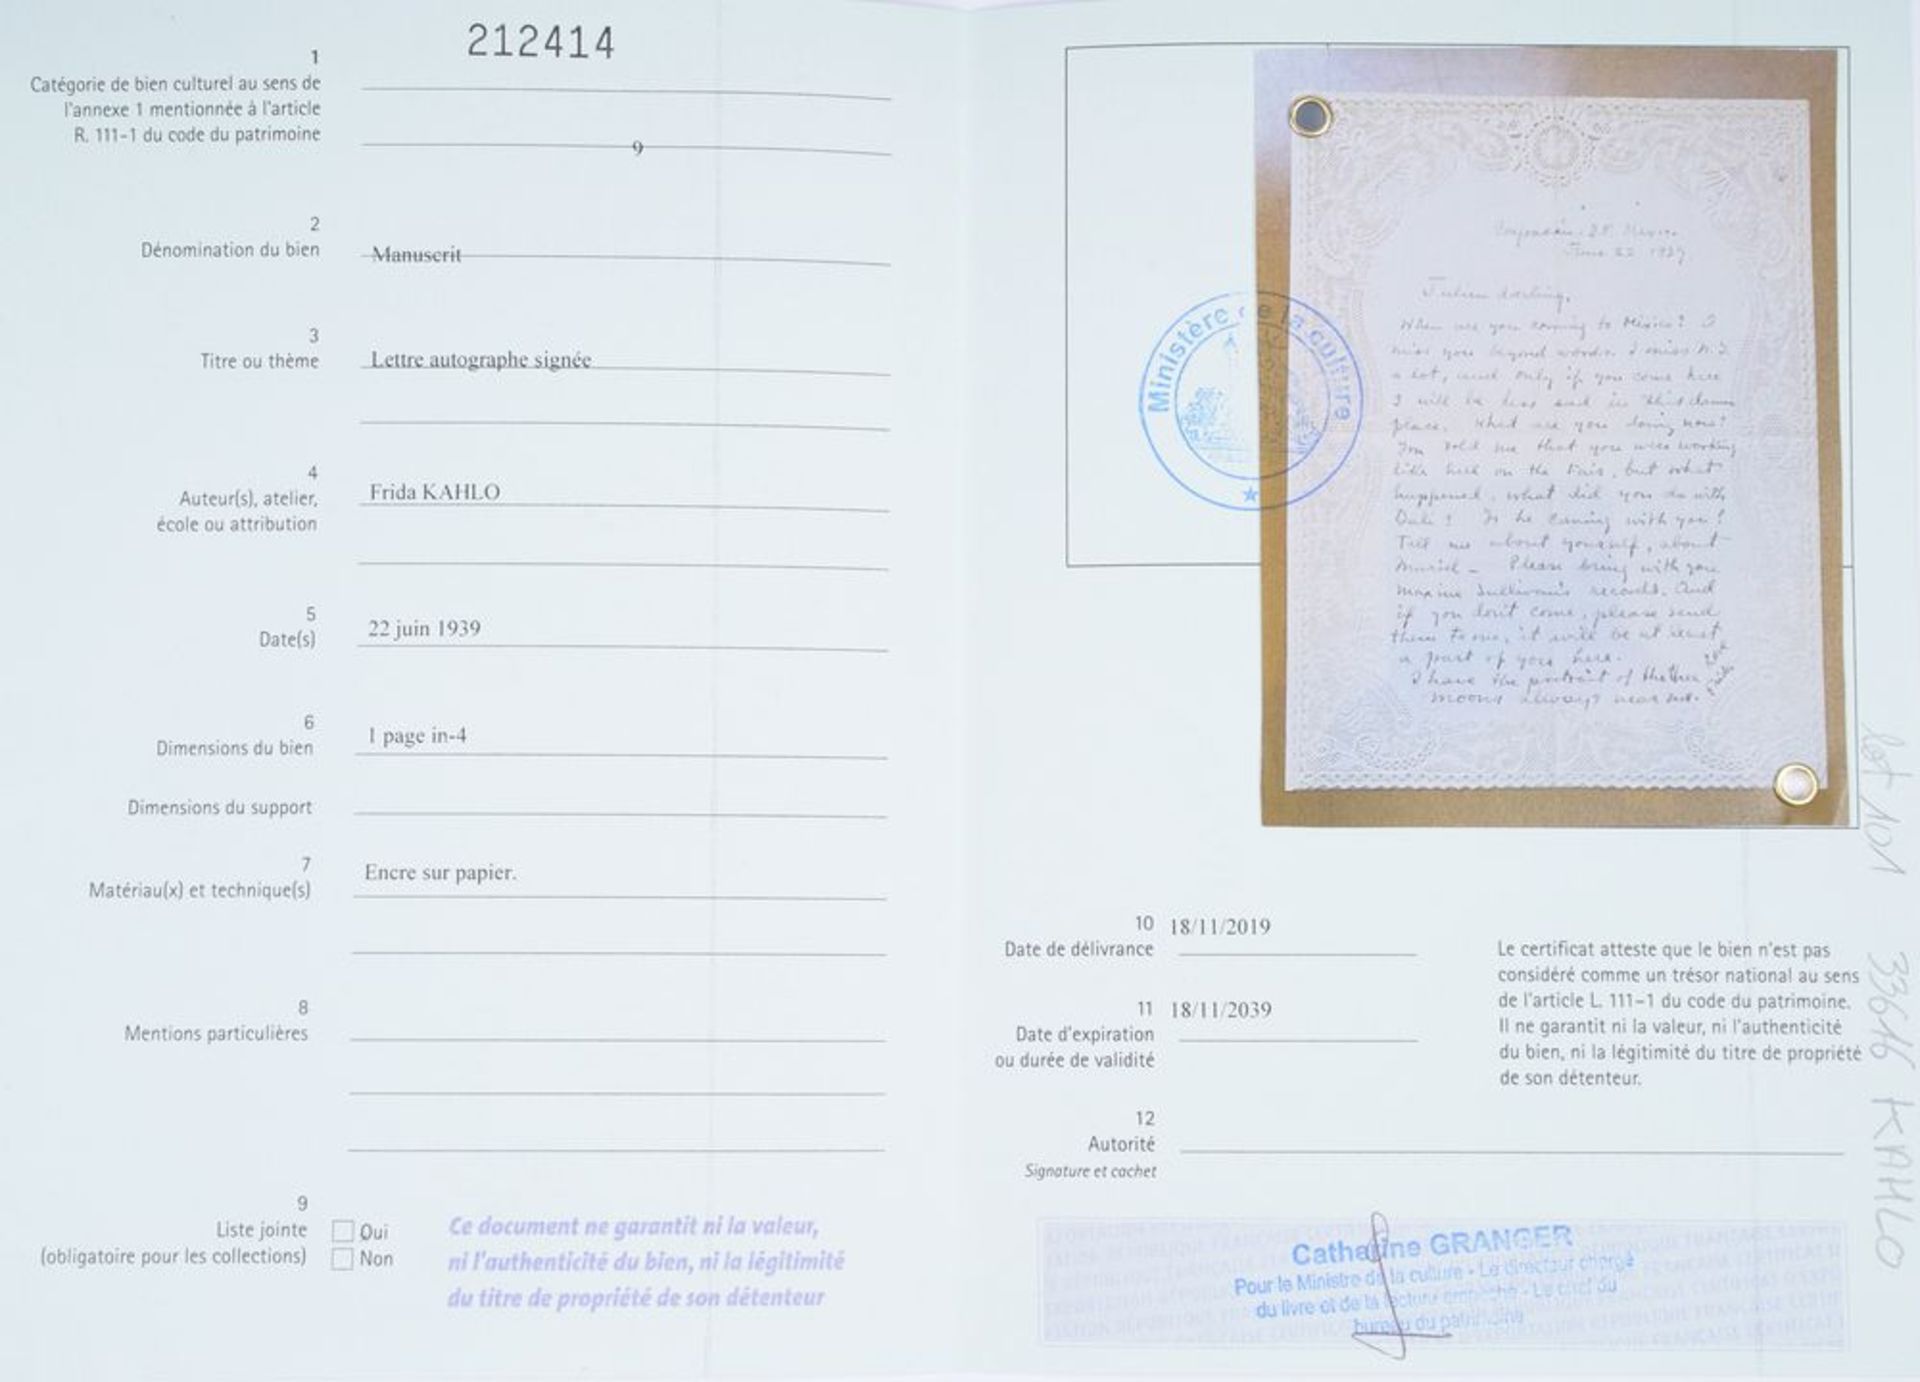 212414
1
Catégorie de bien culturel au sens de
l'annexe 1 mentionnée à l'article
R. 111-1 du code du patrimoine
9
2
Dénomination du bien
Manuscrit
3
Titre ou thème
Lettre autographe signée
4
Auteur(s), atelier,
école ou attribution
Frida KAHLO
5
Date(s)
22 juin 1939
6
Dimensions du bien
1 page in-4
Dimensions du support
7
Matériau(x) et technique(s)
Encre sur papier.
8
Mentions particulières
9
Liste jointe
(obligatoire pour les collections)
Oui
Non
Ce document ne garantit ni la valeur,
ni l'authenticité du bien, ni la légitimité
du titre de propriété de son détenteur
Ministère de la culture
June 22 1939
Julien darling,
When are you coming to Mexico? I
miss you beyond words. I miss N.Y.
a lot, and only if you come here
I will be less sad in this damn
place. What are you doing now?
You told me that you were working
like hell on the Fair, but what
happened, what did you do with
Dali? Is he coming with you?
Tell me about yourself, about
Muriel - Please bring with you
Maxine Sullivan's records. And
if you don't come, please send
them to me, it will be at least
a part of you here.
I have the portrait of the
moons always near me.
10
Date de délivrance
18/11/2019
11
Date d'expiration
ou durée de validité
18/11/2039
Le certificat atteste que le bien n'est pas
considéré comme un trésor national au sens
de l'article L. 111-1 du code du patrimoine.
Il ne garantit ni la valeur, ni l'authenticité
du bien, ni la légitimité du titre de propriété
de son détenteur.
12
Autorité
Signature et cachet
Catherine GRANGER
Pour le Ministre de la culture - Le directeur chargé
du livre et de la lecture - Le chef du
bureau du patrimoine
lot 101 33616 KAHLO